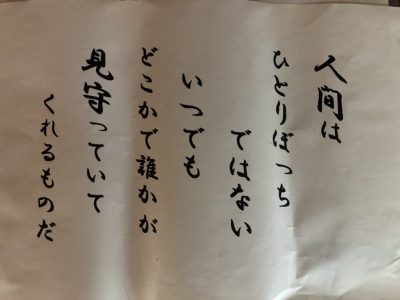 人間は
ひとりぼっち
ではない
いつでも
どこかで誰かが
見守っていて
くれるものだ